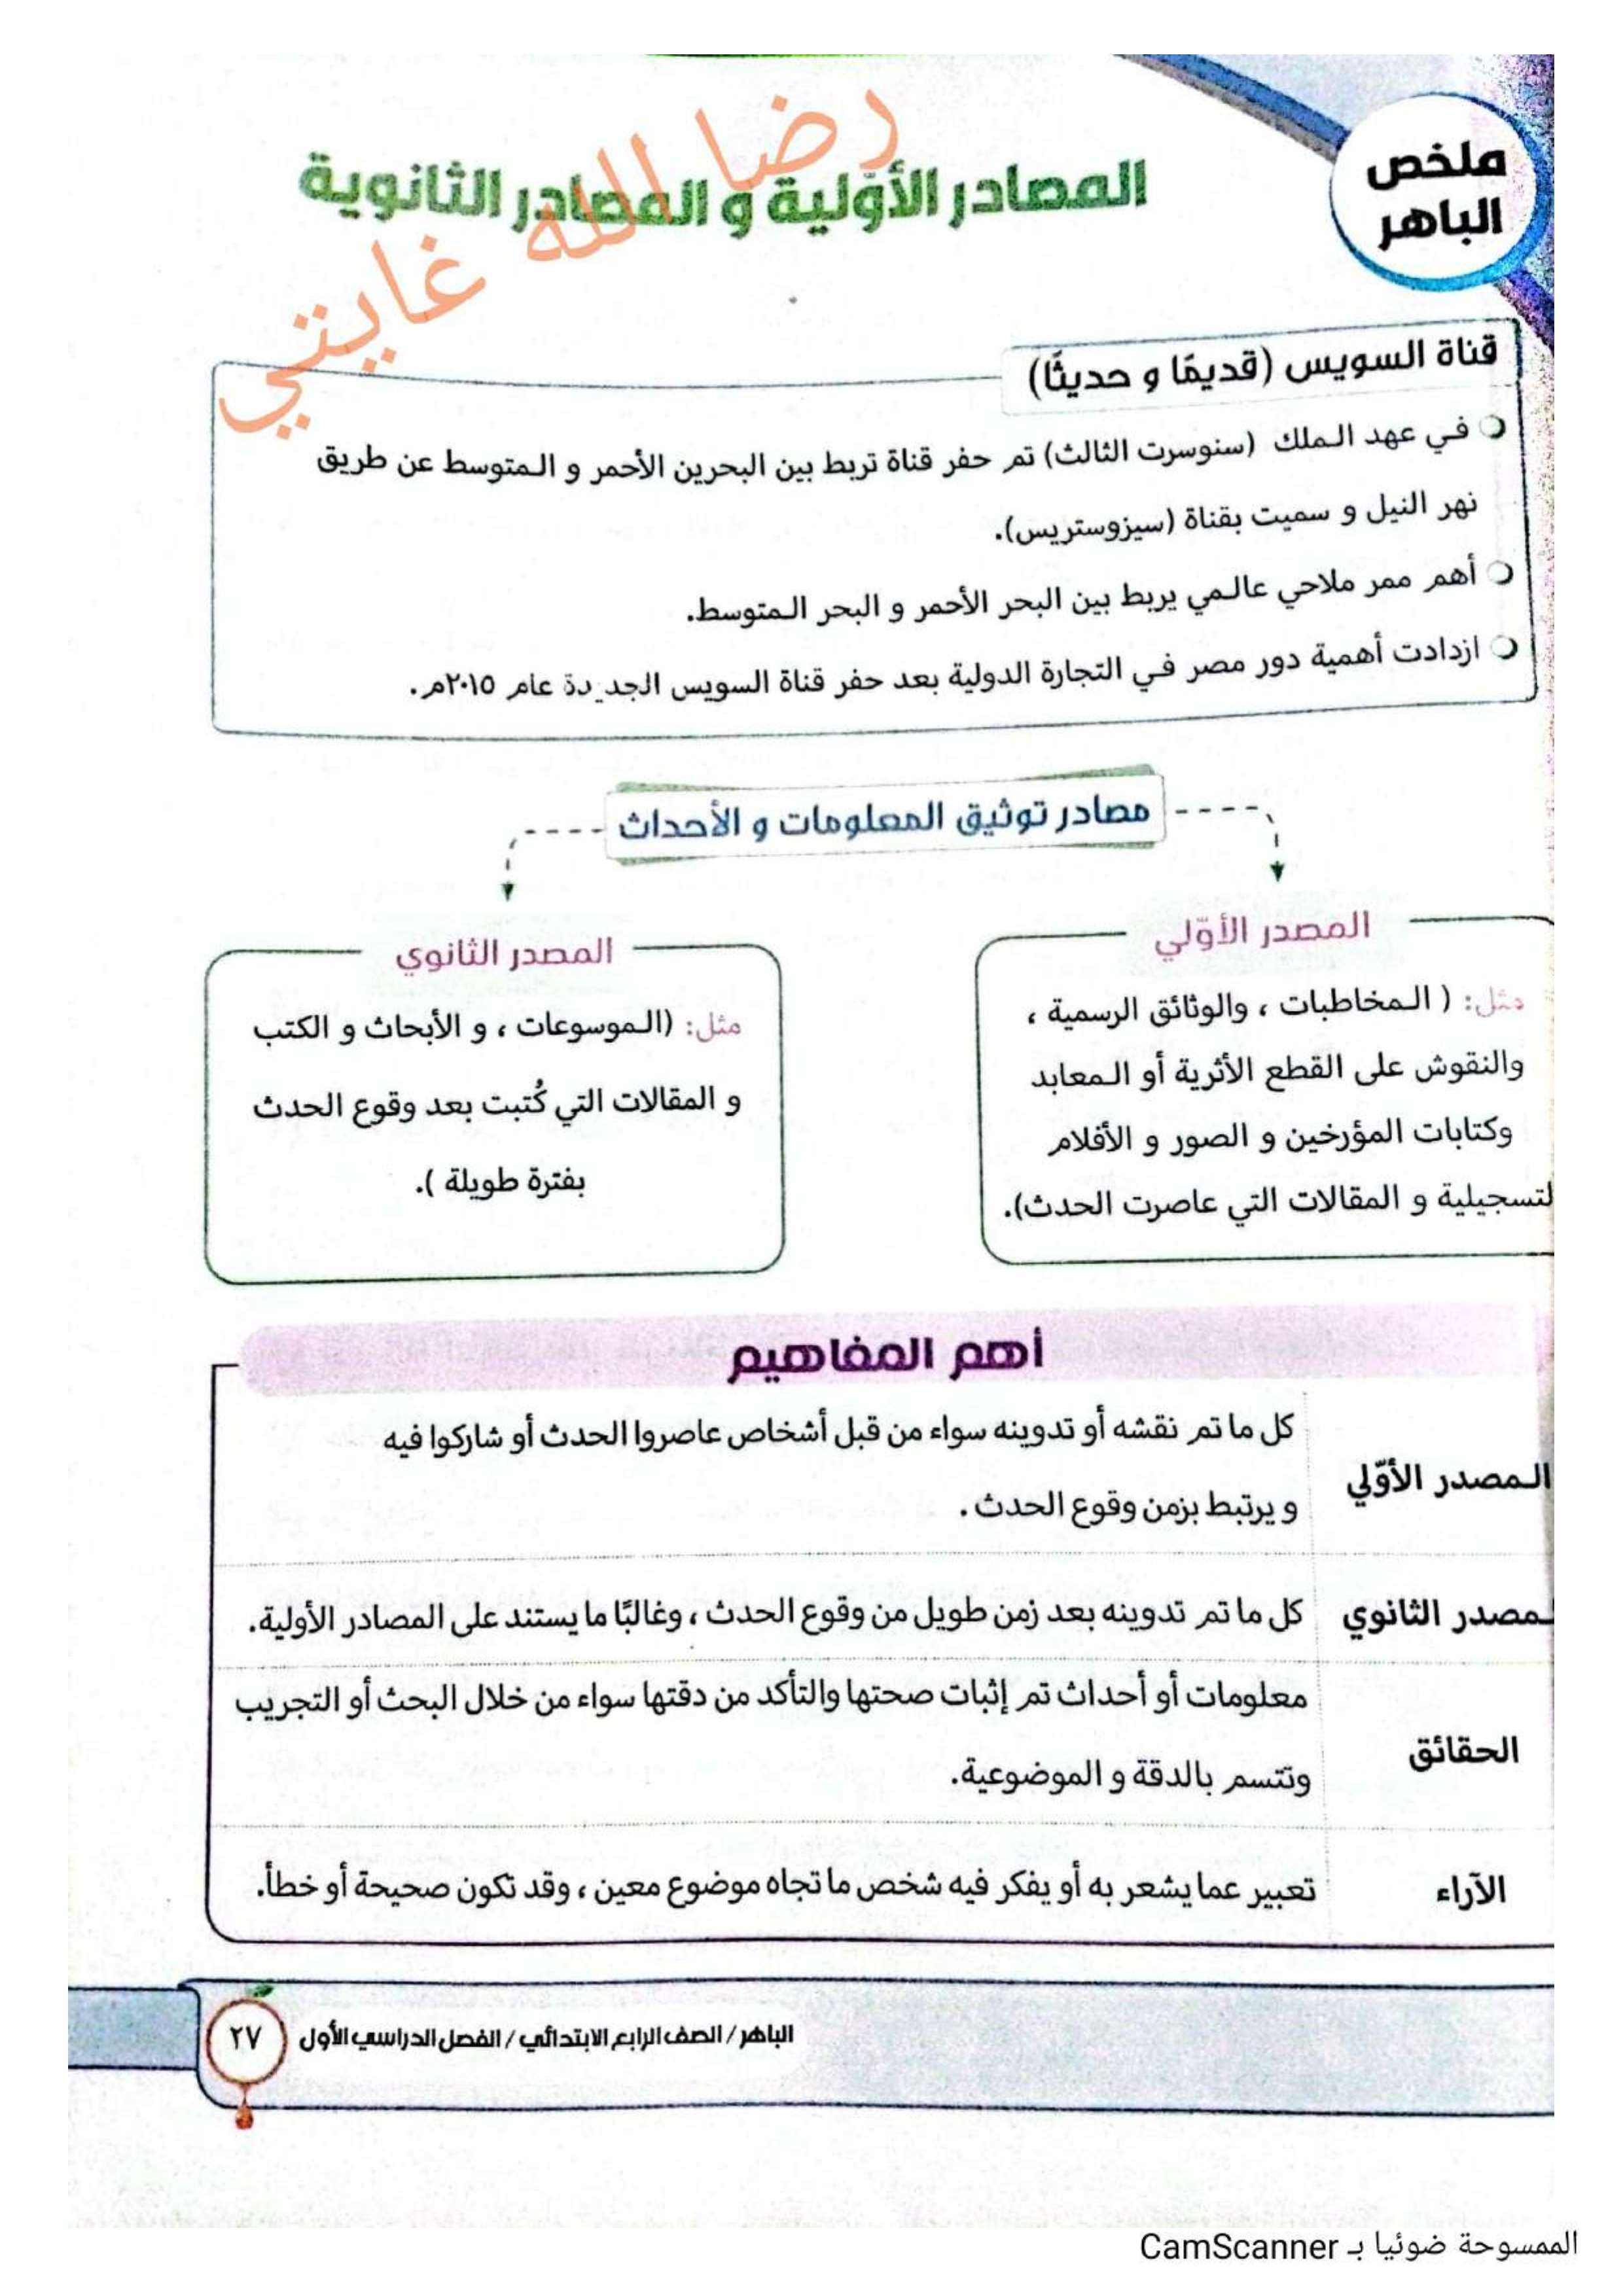 ملخص
الباهر
المصادر الأوّلية و المصادر الثانوية
رضا الله غايتي
قناة السويس (قديمًا و حديثًا)
في عهد الملك (سنوسرت الثالث) تم حفر قناة تربط بين البحرين الأحمر و المتوسط عن طريق
نهر النيل و سميت بقناة (سيزوستريس).
أهم ممر ملاحي عالمي يربط بين البحر الأحمر و البحر المتوسط.
ازدادت أهمية دور مصر في التجارة الدولية بعد حفر قناة السويس الجديدة عام ٢٠١٥م.
مصادر توثيق المعلومات و الأحداث
المصدر الأوّلي
مثل: ( المخاطبات ، والوثائق الرسمية ،
والنقوش على القطع الأثرية أو المعابد
وكتابات المؤرخين و الصور و الأفلام
لتسجيلية و المقالات التي عاصرت الحدث).
المصدر الثانوي
مثل: (الموسوعات ، و الأبحاث و الكتب
و المقالات التي كُتبت بعد وقوع الحدث
بفترة طويلة ).
أهم المفاهيم
المصدر الأوّلي
كل ما تم نقشه أو تدوينه سواء من قبل أشخاص عاصروا الحدث أو شاركوا فيه
و يرتبط بزمن وقوع الحدث .
لمصدر الثانوي
كل ما تم تدوينه بعد زمن طويل من وقوع الحدث ، وغالبًا ما يستند على المصادر الأولية.
الحقائق
معلومات أو أحداث تم إثبات صحتها والتأكد من دقتها سواء من خلال البحث أو التجريب
وتتسم بالدقة و الموضوعية.
الآراء
تعبير عما يشعر به أو يفكر فيه شخص ما تجاه موضوع معين ، وقد تكون صحيحة أو خطأ.
الباهر / الصف الرابع الابتدائي / الفصل الدراسي الأول
٢٧
الممسوحة ضوئيا بـ CamScanner